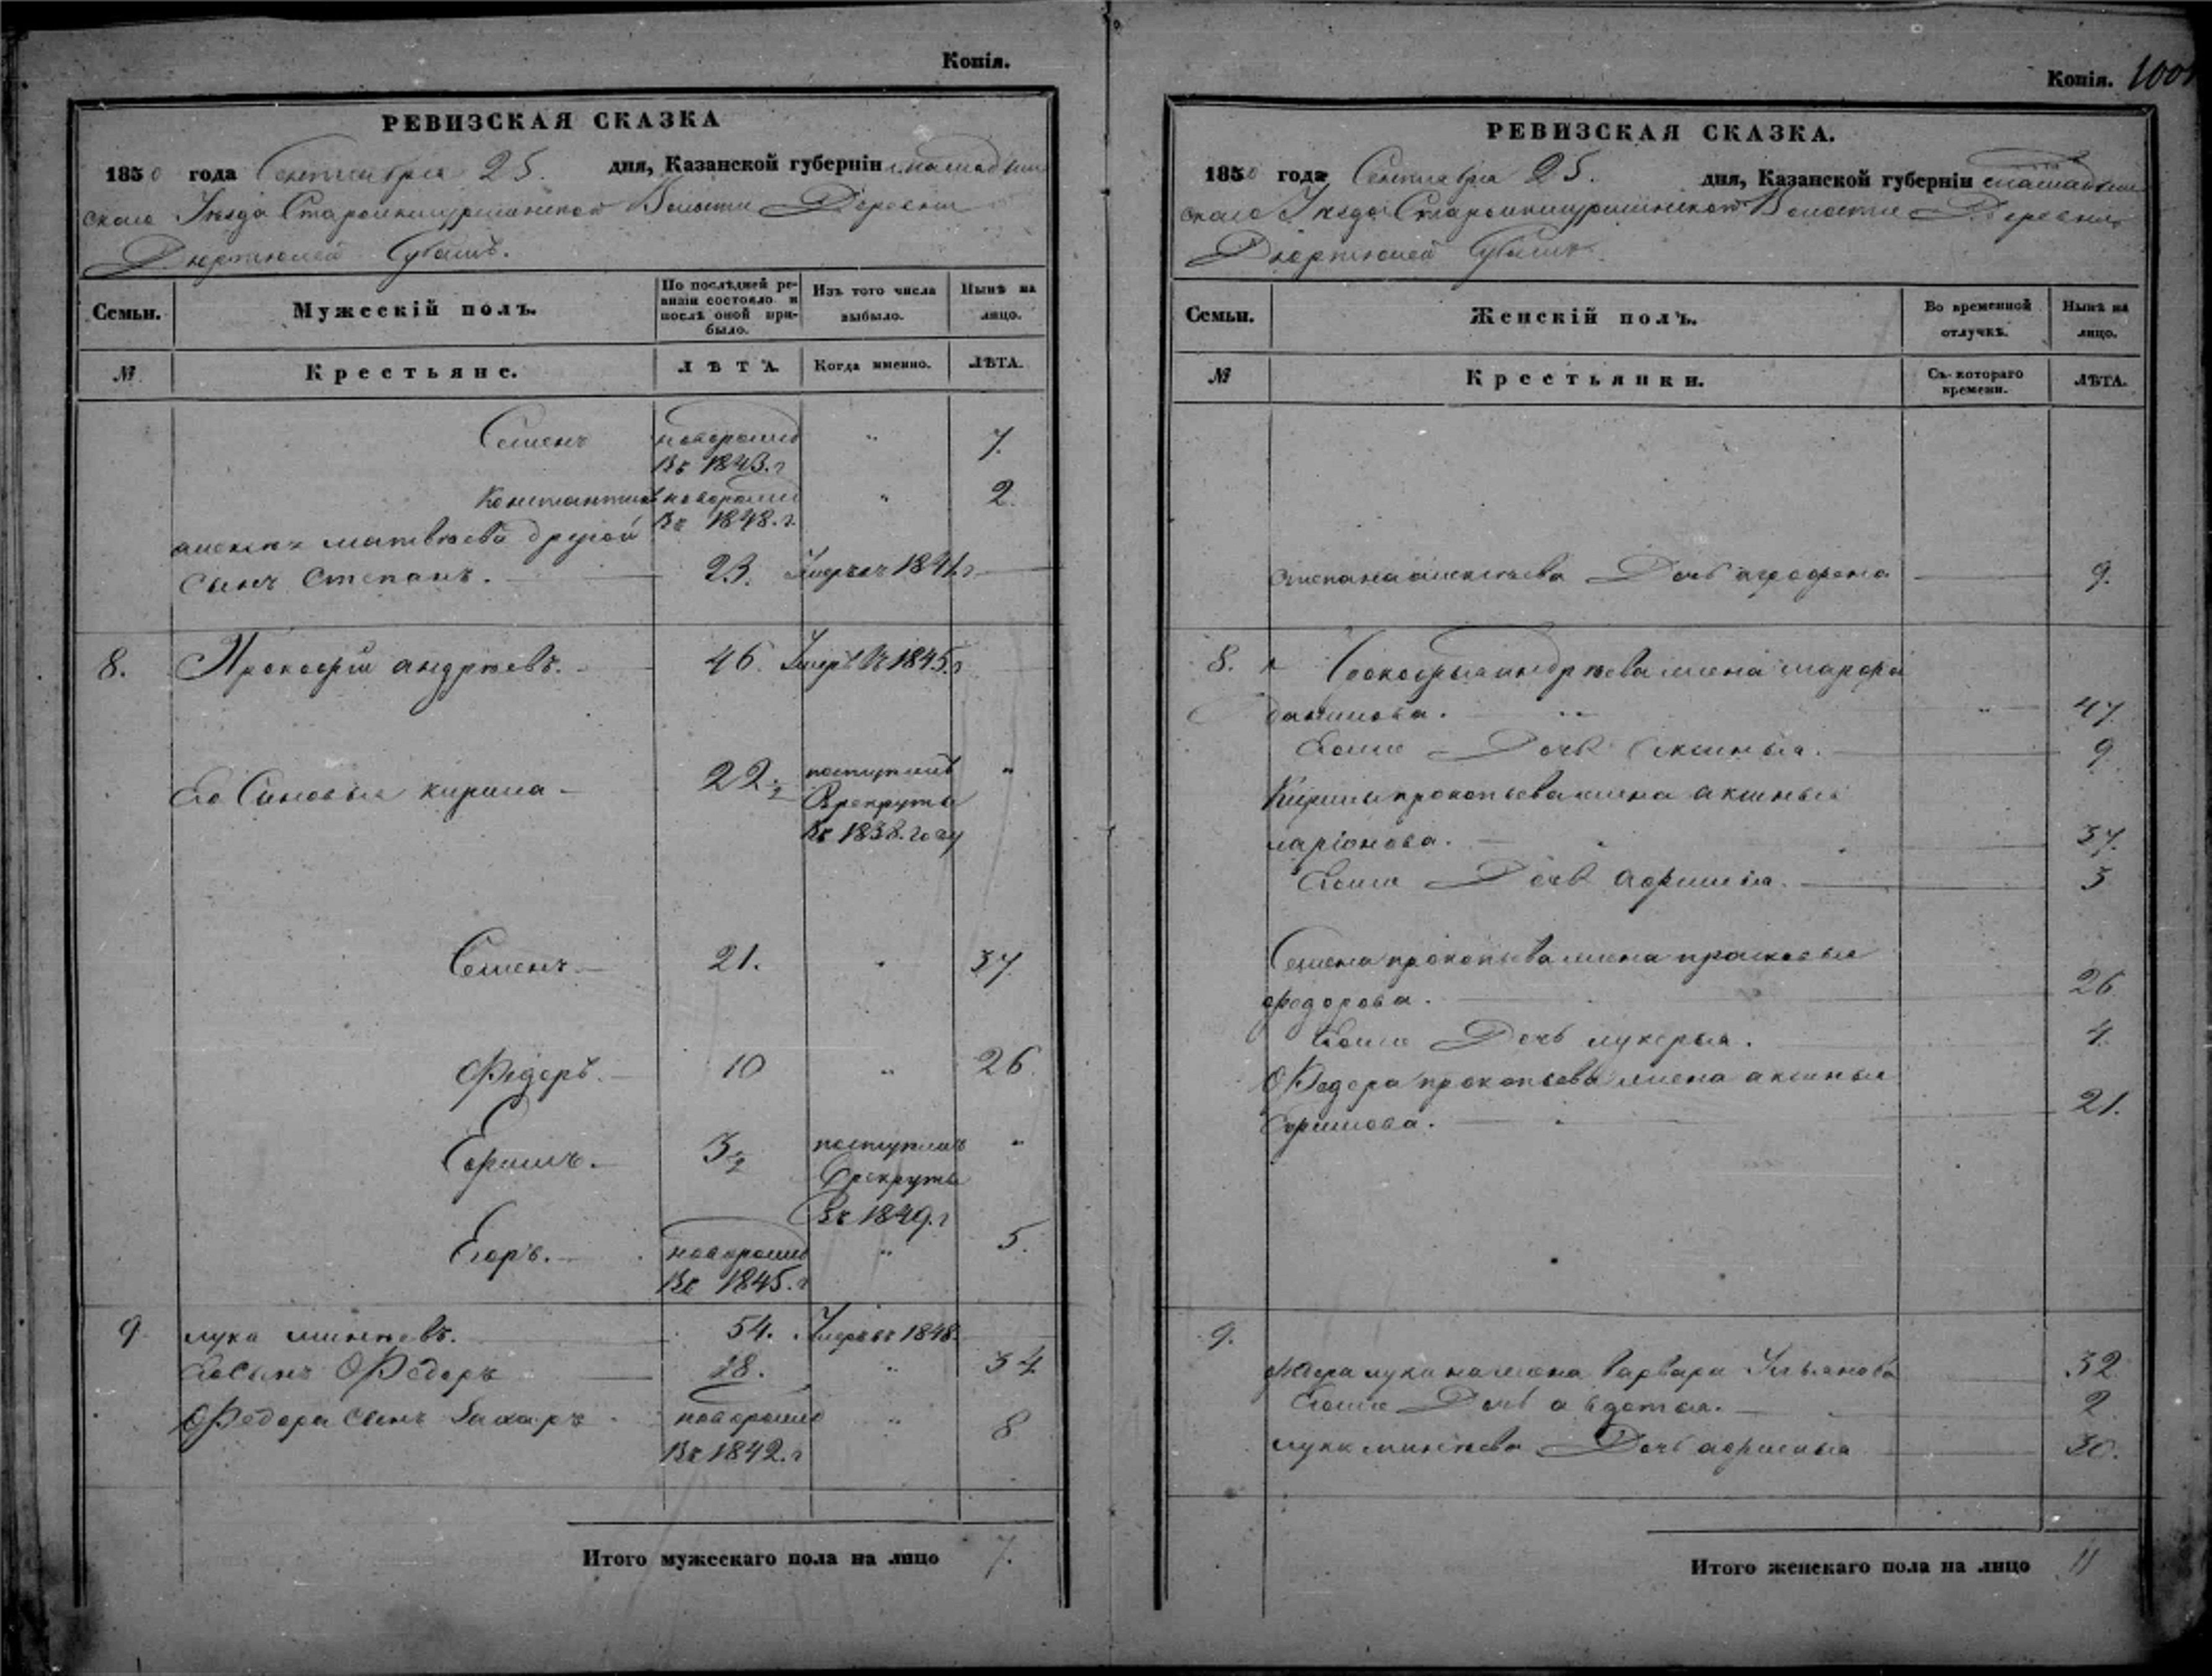 Копія.
РЕВИЗСКАЯ СКАЗКА
1850 года Сентября 25. дня, Казанской губерніи
скаго Уѣзда Волости Деревни
Семьи. Мужескій полъ. По послѣдней ревизіи состояло и послѣ оной прибыло. Изъ того числа выбыло. Нынѣ на лицо.
№ Крестьяне. ЛѢТА. Когда именно. ЛѢТА.
Семенъ новорожд " 7.
въ 1843.г
Константинъ новорожд " 2.
въ 1848.г.
алексѣя матвѣева другой
сынъ Степанъ. 23. Умеръ въ 1841.г
8. Прокофій андрѣевъ. 46. Умеръ въ 1845.г
Его Сыновья кирила 22 1/2 поступилъ "
В рекруты
въ 1838.году
Семенъ 21. " 37
Ѳедоръ. 10 " 26.
Ефимъ. 3 1/2 поступилъ "
В рекруты
въ 1849.г
Егоръ. новорожд " 5.
въ 1845.г
9 лука минѣевъ. 54. Умеръ въ 1848.
Его сынъ Ѳедоръ 18. " 34
Ѳедора сынъ Захаръ новорожд " 8
въ 1842.г
Итого мужескаго пола на лицо 7.
Копія. 100
РЕВИЗСКАЯ СКАЗКА.
1850 года Сентября 25. дня, Казанской губерніи
скаго Уѣзда Волости Деревни
Семьи. Женскій полъ. Во временной отлучкѣ. Нынѣ на лицо.
№ Крестьянки. Съ котораго времени. ЛѢТА.
степана алексѣева Дочь агрофена 9.
8. Прокофья андрѣева жена марфа
данилова. " 47.
Его Дочь аксинья. 9
Кирилы прокопьева жена аксинья
ларіонова. 37.
Его Дочь афимья. 3
Семена прокопьева жена прасковья
федорова. 26
Его Дочь лукерья. 4.
Ѳедора прокопьева жена аксинья
Ефимова. 21.
9.
Ѳедора лукина жена варвара Ульянова 32
Его Дочь авдотья. 2
луки минѣева Дочь афимья 30.
Итого женскаго пола на лицо 11